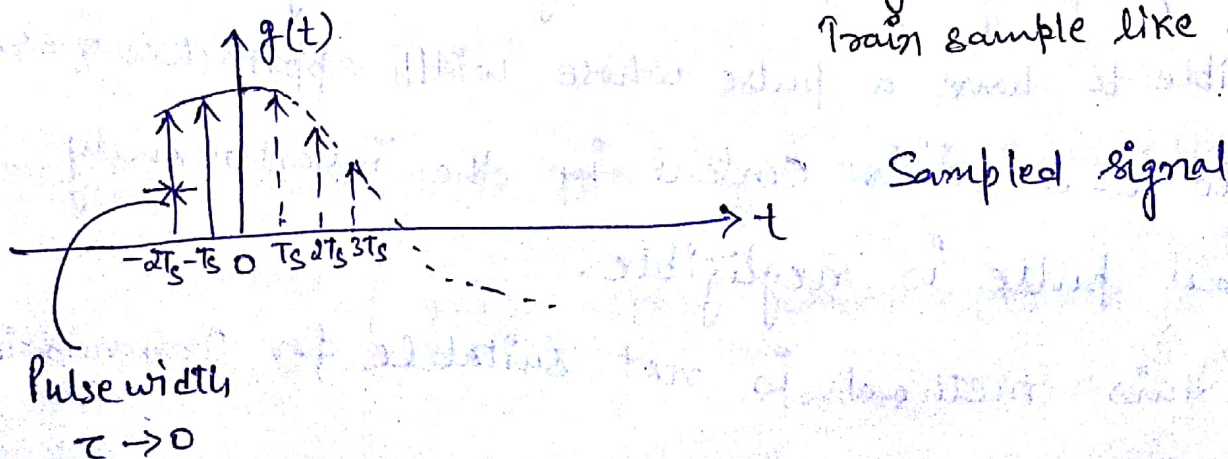 Train sample like
g(t)
Sampled signal
t
-2Ts -Ts 0 Ts 2Ts 3Ts
Pulse width
τ → 0